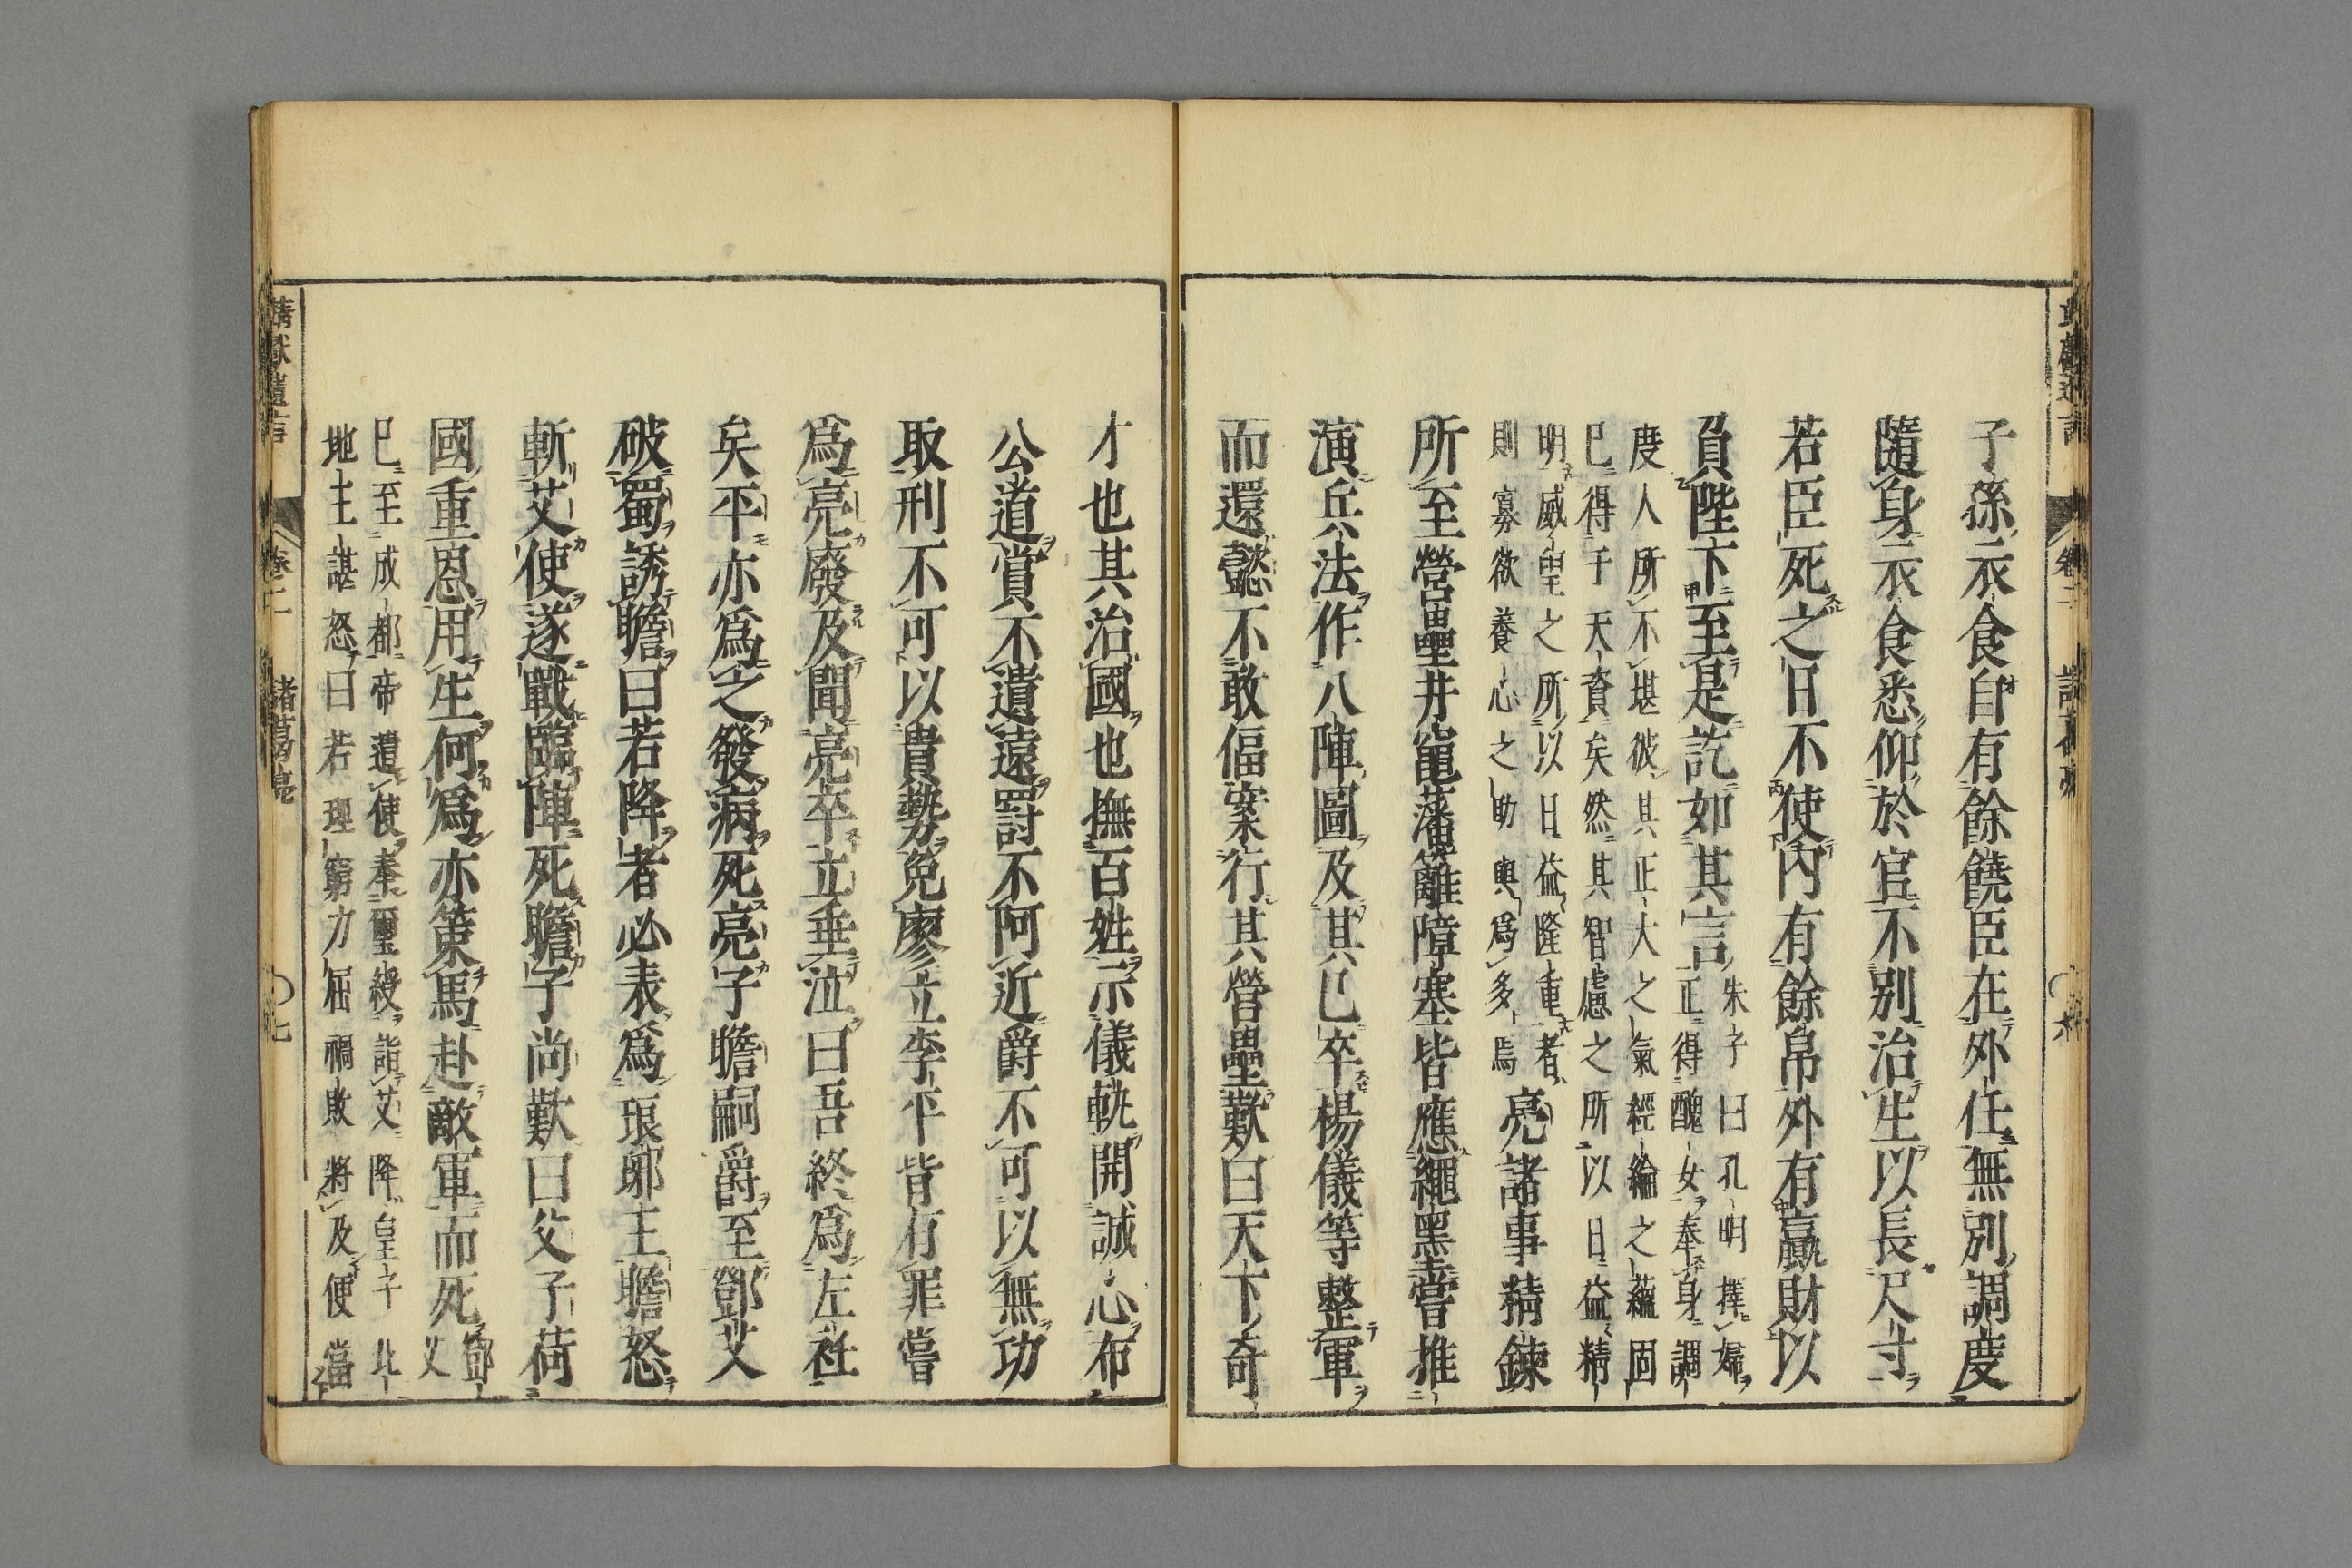 子孫衣食自有餘饒臣在外任無別調度
隨身衣食悉仰於官不別治生以長尺寸
若臣死之日不使內有餘帛外有贏財以
負陛下至是訖如其言
朱子曰孔明擇婦
正得醜女奉身調
度人所不堪彼其正大之氣經綸之蘊固
已得于天資矣然其智慮之所以日益精
明威望之所以日益隆重者
則寡欲養心之助與爲多焉
亮諸事精鍊
所至營壘井竈藩籬障塞皆應繩墨嘗推
演兵法作八陣圖及其已卒楊儀等整軍
而還懿不敢偪案行其營壘歎曰天下奇
才也其治國也撫百姓示儀軌開誠心布
公道賞不遺遠罰不阿近爵不可以無功
取刑不可以貴勢免廖立李平皆有罪嘗
爲亮廢及聞亮卒立垂泣曰吾終爲左衽
矣平亦爲之發病死亮子瞻嗣爵至鄧艾
破蜀誘瞻曰若降者必表爲琅邪王瞻怒
斬艾使遂戰臨陣死瞻子尚歎曰父子荷
國重恩用生何爲亦策馬赴敵軍而死
鄧
艾
已至成都帝遣使奉璽綬詣艾降皇子北
地王諶怒曰若理窮力屈禍敗將及便當
靖獻遺言
卷二
諸葛亮
〇七